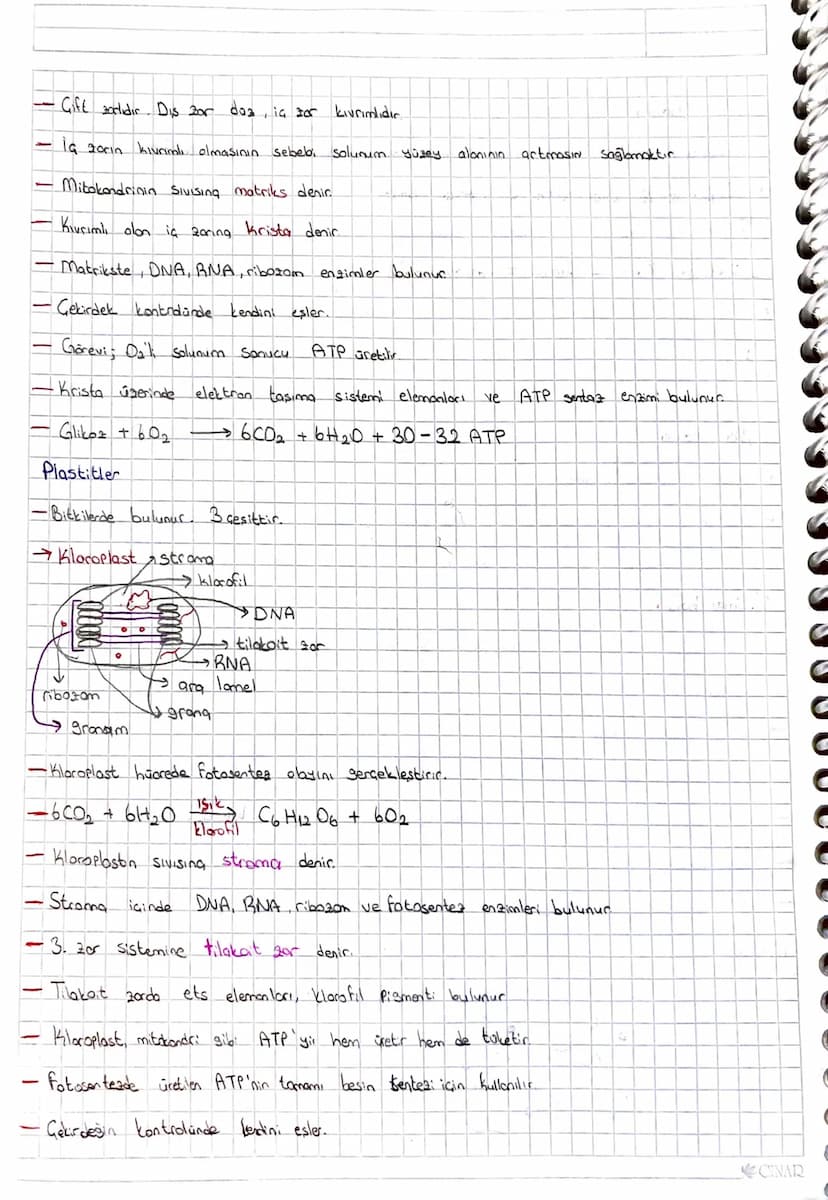 - Çift zarlıdır. Dış zar düz, iç zar kıvrımlıdır.
- İç zarın kıvrımlı olmasının sebebi solunum yüzey alanının artmasını sağlamaktır.
- Mitokondrinin sıvısına matriks denir.
- Kıvrımlı olan iç zarına krista denir.
- Matrikste, DNA, RNA, ribozom enzimler bulunur.
- Çekirdek kontrolünde kendini eşler.
- Görevi; O2'li solunum sonucu ATP üretilir.
- Krista üzerinde elektron taşıma sistemi elemanları ve ATP sentaz enzimi bulunur.
- Glikoz + 6O2 → 6CO2 + 6H2O + 30-32 ATP
Plastitler
- Bitkilerde bulunur. 3 çeşittir.
→ Kloroplast
stroma
klorofil
DNA
tilakoit zar
RNA
ara lamel
ribozom
grana
granum
- Kloroplast hücrede fotosentez olayını gerçekleştirir.
- 6CO2 + 6H2O Işık → klorofil C6H12O6 + 6O2
- Kloroplastın sıvısına stroma denir.
- Stroma içinde DNA, RNA, ribozom ve fotosentez enzimleri bulunur.
- 3. zar sistemine tilakoit zar denir.
- Tilakoit zarda ets elemanları, klorofil pigmenti bulunur
- Kloroplast, mitokondri gibi ATP'yi hem üretir hem de tüketir.
- Fotosentezde üretilen ATP'nin tamamı besin sentezi için kullanılır.
- Çekirdeğin kontrolünde kendini eşler.
ÇINAR